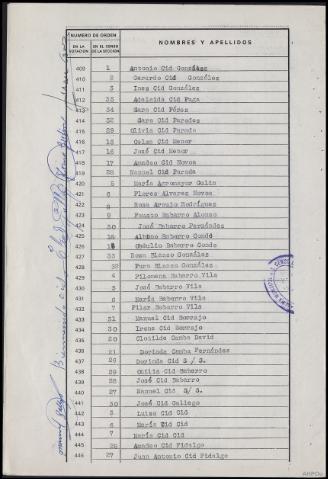 NUMERO DE ORDEN
EN LA VOTACION
EN EL CENSO DE LA SECCION
NOMBRES Y APELLIDOS
409 1 Antonio Cid González
410 2 Gerardo Cid González
411 3 Ines Cid González
412 33 Adelaida Cid Puga
413 34 Sara Cid Pérez
414 32 Sara Cid Paredes
416 29 Olivia Cid Parada
415 18 Celso Cid Menor
417 16 José Cid Menor
418 17 Amadeo Cid Novoa
419 28 Manuel Cid Parada
420 5 María Arromayor Golin
421 6 Flores Alvarez Novoa
422 8 Rosa Araujo Rodríguez
423 9 Fausto Babarro Alonso
424 30 José Babarro Fernández
425 14 Albino Babarro Conde
426 15 Obdulio Babarro Conde
427 33 Rosa Blanco González
428 32 Pura Blanco González
429 4 Filomena Babarro Vila
430 3 José Babarro Vila
431 6 María Babarro Vila
432 7 Pilar Babarro Vila
433 31 Manuel Cid Borrajo
434 34 Irene Cid Borrajo
435 20 Clotilde Camba David
436 21 Dorinda Camba Fernández
437 26 Dorinda Cid S/ S.
438 29 Otilia Cid Babarro
439 28 José Cid Babarro
440 27 Manuel Cid S/ S.
441 30 José Cid Gallego
442 3 Luisa Cid Cid
443 6 María Cid Cid
444 7 María Cid Cid
445 26 Amadeo Cid Fidalgo
446 27 Juan Antonio Cid Fidalgo
AHPOu